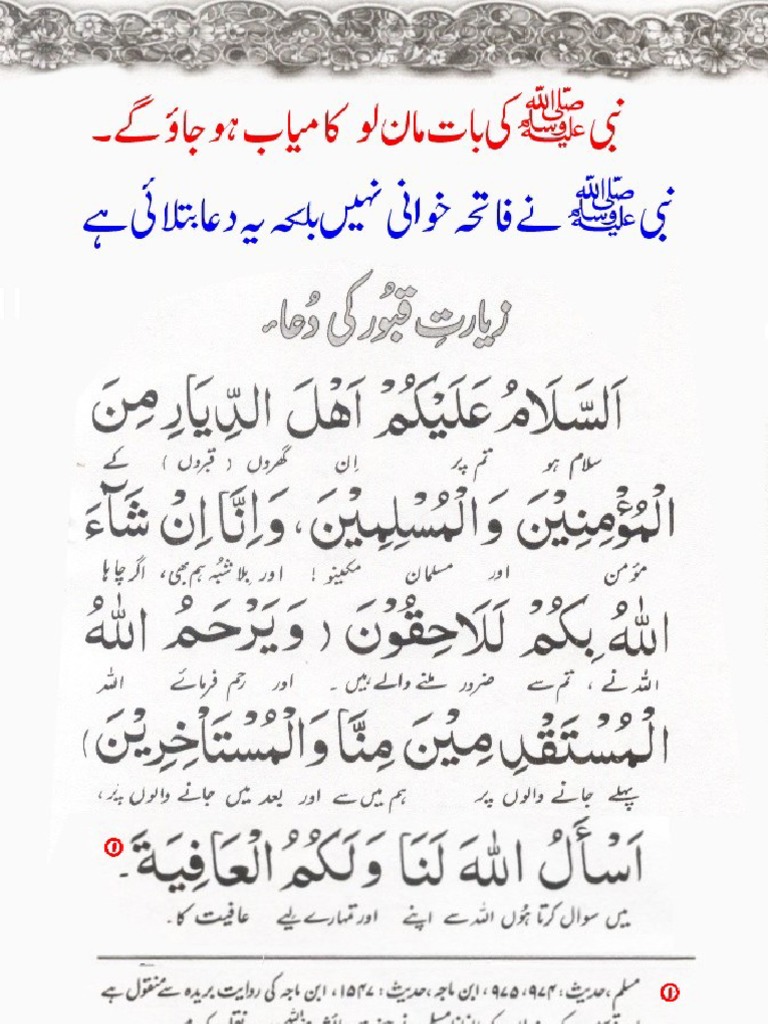 نبی ﷺ کی بات مان لو کامیاب ہو جاؤ گے۔
نبی ﷺ نے فاتحہ خوانی نہیں بلکہ یہ دعا بتلائی ہے
زیارتِ قبُور کی دُعاء
اَلسَّلَامُ عَلَيْكُمْ اَهْلَ الدِّيَارِ مِنَ
سلام ہو تم پر اِن گھروں (قبروں) کے
الْمُؤْمِنِيْنَ وَالْمُسْلِمِيْنَ، وَاِنَّا اِنْ شَآءَ
مؤمن اور مسلمان مکینو! اور بلاشبُہ ہم بھی، اگر چاہا
اللهُ بِكُمْ لَلَاحِقُوْنَ (وَيَرْحَمُ اللهُ
اللہ نے، تم سے ضرور ملنے والے ہیں۔ اور رحم فرمائے اللہ
الْمُسْتَقْدِمِيْنَ مِنَّا وَالْمُسْتَاْخِرِيْنَ)
پہلے جانے والوں پر ہم میں سے اور بعد میں جانے والوں پر،
اَسْأَلُ اللهَ لَنَا وَلَكُمُ الْعَافِيَةَ۔ ①
میں سوال کرتا ہُوں اللہ سے اپنے اور تمہارے لیے عافیت کا۔
① مسلم، حدیث: ۹۷۴، ۹۷۵، ابن ماجہ، حدیث: ۱۵۴۷، ابن ماجہ کی روایت بریدہ سے منقول ہے